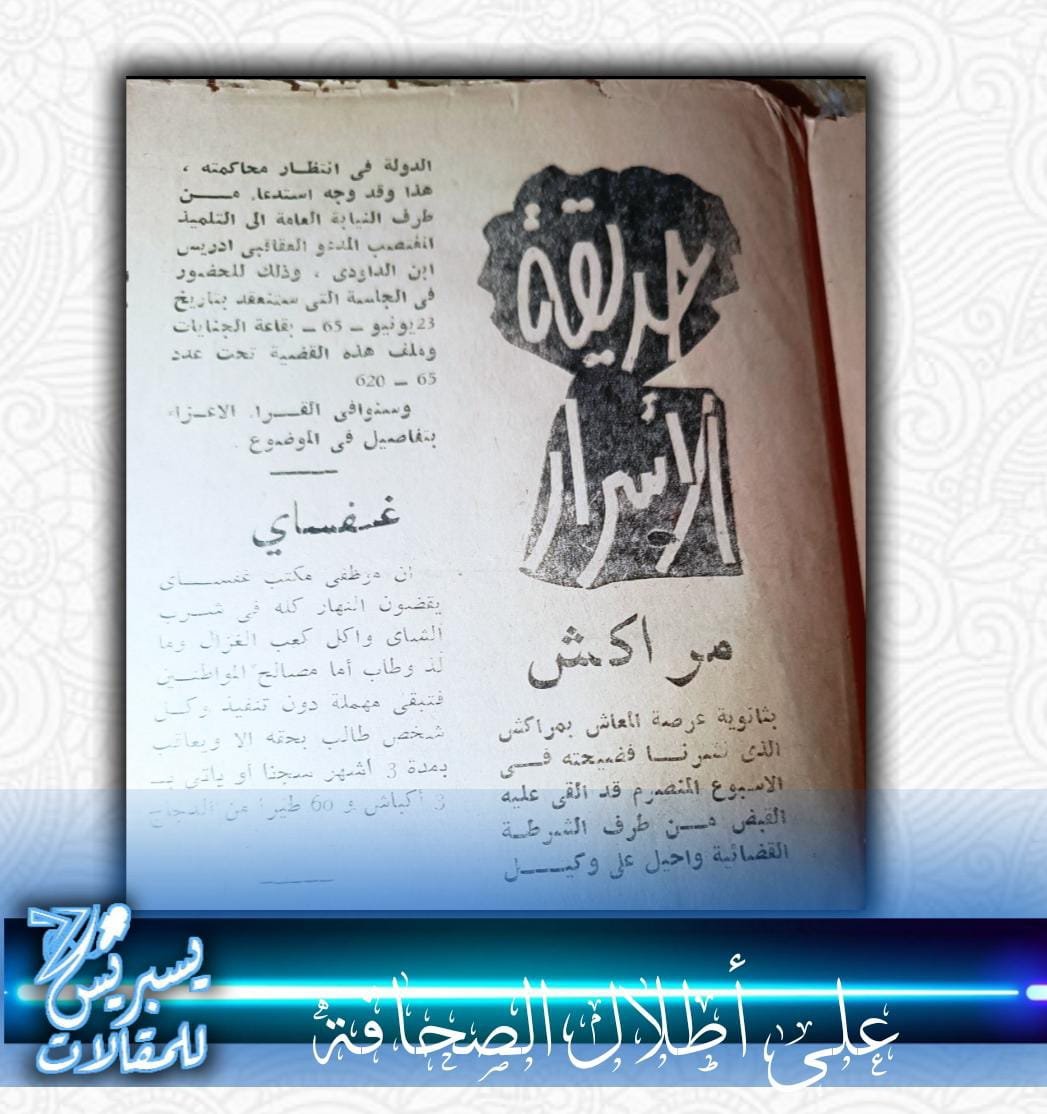 حديقة
الاسرار
مراكش
بثانوية عرصة المعاش بمراكش
الذى نشرنا فضيحته فى
الاسبوع المنصرم قد القى عليه
القبض من طرف الشرطة
القضائية واحيل على وكيل
الدولة فى انتظار محاكمته ،
هذا وقد وجه استدعاء من
طرف النيابة العامة الى التلميذ
المغتصب المدعو ادريس
ابن الداودى ، وذلك للحضور
فى الجلسة التى ستنعقد بتاريخ
23 يونيو — 65 — بقاعة الجنايات
وملف هذه القضية تحت عدد
65 — 620
وسنوافى القراء الاعزاء
بتفاصيل فى الموضوع .
غفساي
ان موظفى مكتب غفساى
يقضون النهار كله فى شرب
الشاى واكل كعب الغزال وما
لذ وطاب أما مصالح المواطنين
فتبقى مهملة دون تنفيذ وكل
شخص طالب بحقه الا ويعاقب
بمدة 3 اشهر سجنا أو ياتى بـ
3 أكباش و 60 طيرا من الدجاج
يسبريس
للمقالات
على أطلال الصحافة